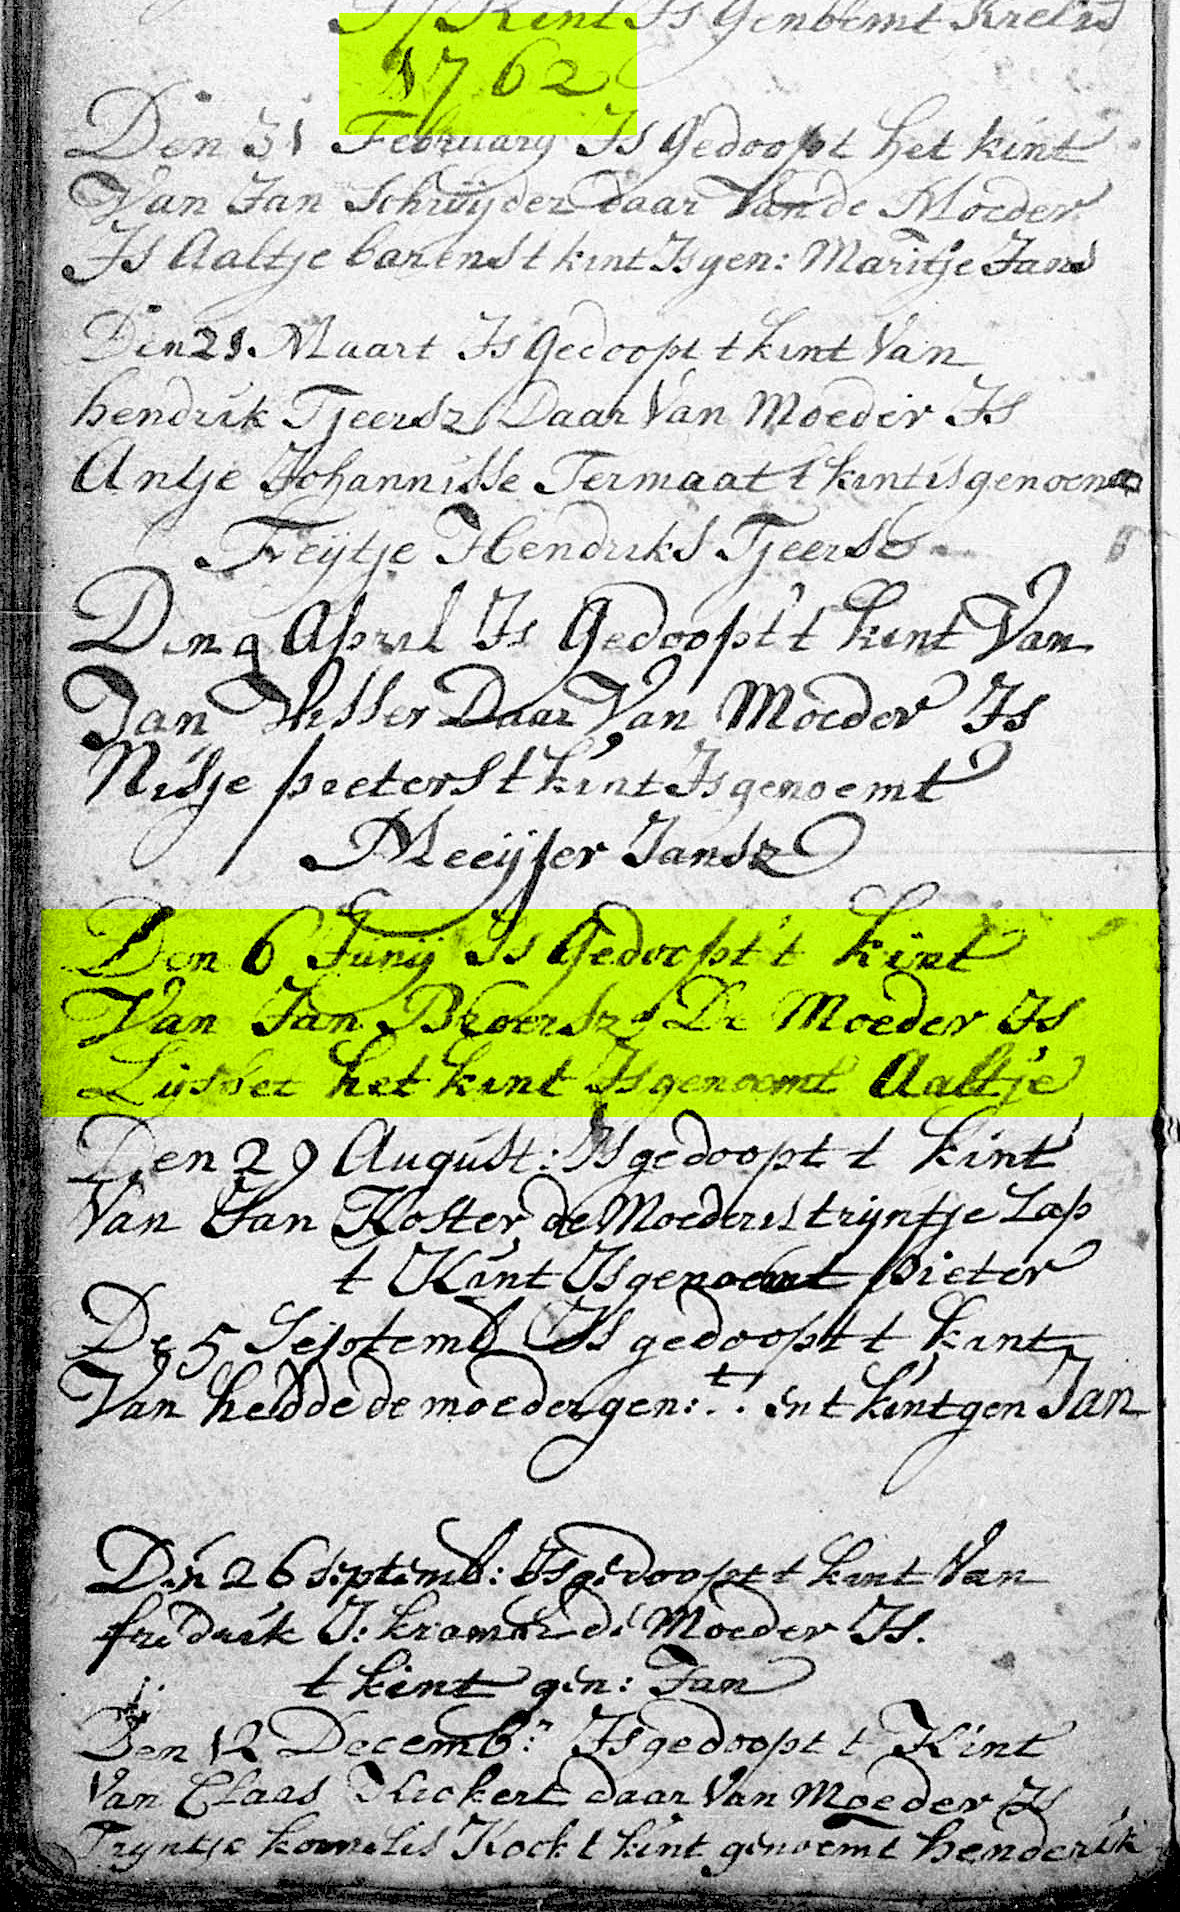 Kint Is Genoemt Krelis
1762
Den 31 February Is Gedoopt het kint
Van Jan Schruyder daar Van de Moeder
Is Aaltje barens t kint Is gen: Maritje Jans
Den 21 Maart Is Gedoopt t kint Van
hendrik Tjeersz Daar Van Moeder Is
Antje Johannisse Termaat t kint is genoemt
Feijtje Hendriks Tjeers
Den 9 April Is Gedoopt t kint Van
Jan Visser Daar Van Moeder Is
Nisje pieters t kint Is genoemt
Meeijser Jansz
Den 6 Junij Is Gedoopt t kint
Van Jan Broersz De Moeder Is
Lijsbet het kint Is genoemt Aaltje
Den 29 August: Is gedoopt t kint
Van Jan Koster de Moeder is trijntje Lap
t Kint Is genoemt Pieter
De 5 Septemb Is gedoopt t kint
Van hedde de moeder gen: . t . . en t kint gen Jan
Den 26 septemb: Is gedoopt t kint Van
fredrik J: kramer de Moeder Is.
t kint gen: Jan
Den 12 Decemb: Is gedoopt t Kint
Van Claas Kickert daar Van Moeder Is
Tryntje kornelis Kock t kint genoemt henderik